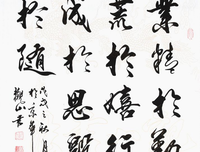 業精於勤
荒於嬉行
成於思毀
於隨
戊戌之秋月
於京華
觀山書